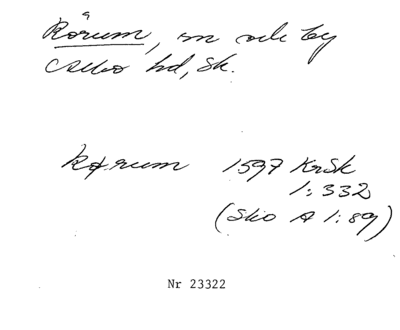 Rörum, sn och by
Albo hd, Sk.
Rørum 1597 KrSk
1:332
(Sko A 1:89)
Nr 23322